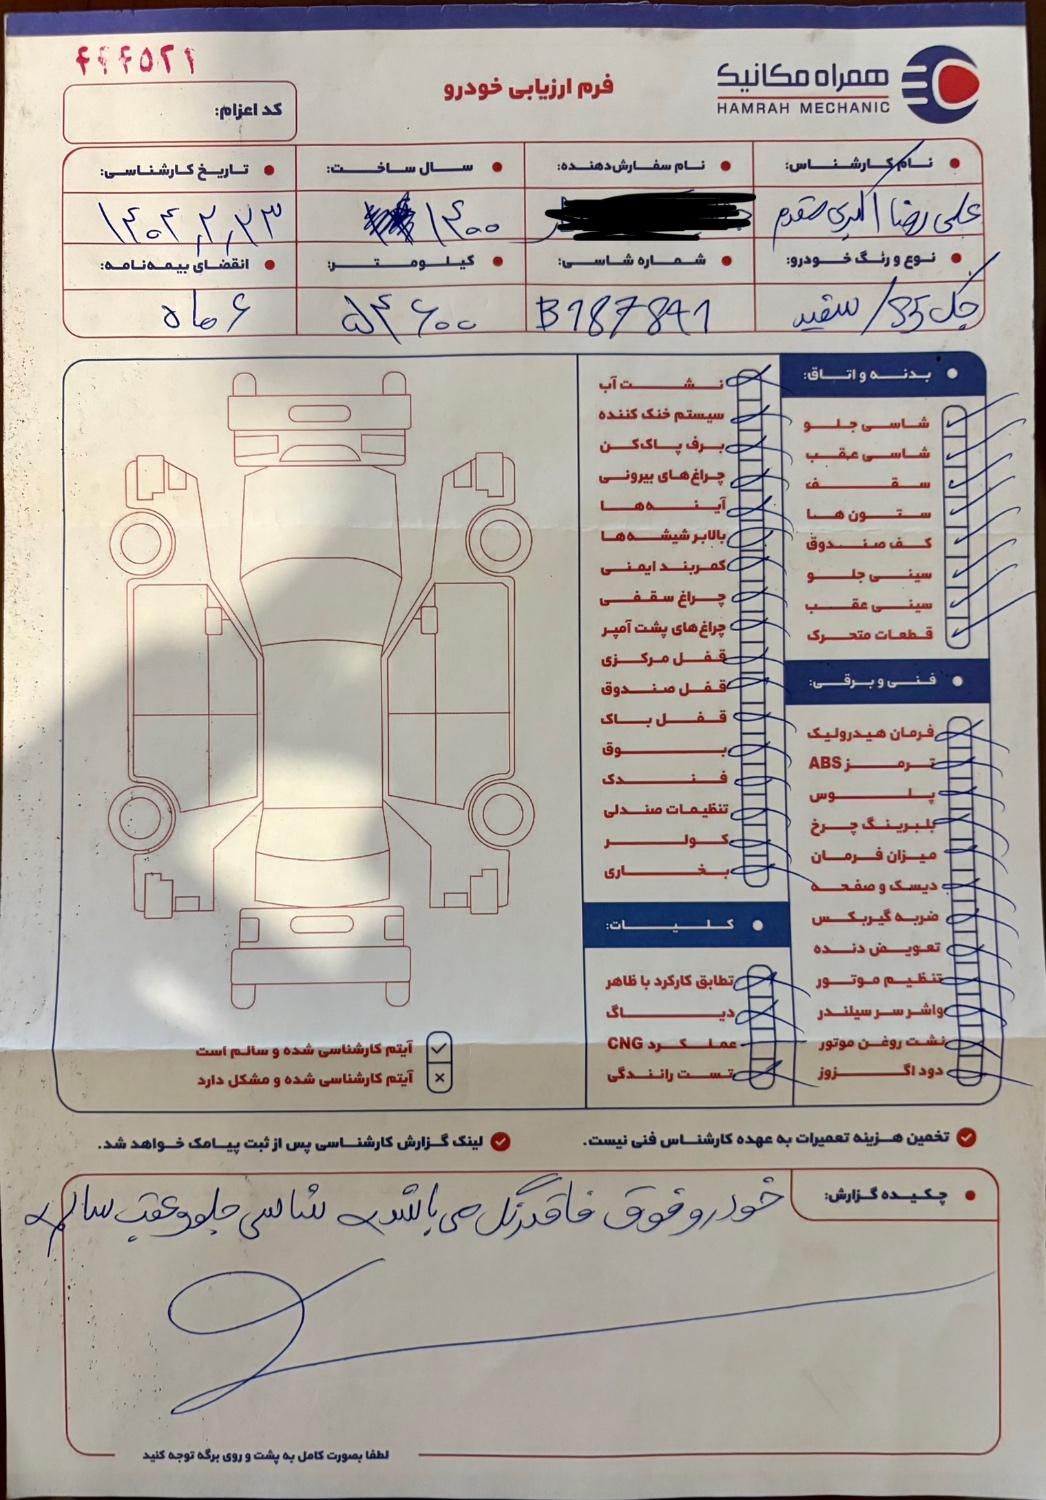 ۴۴۴۵۲۱
همراه مکانیک
HAMRAH MECHANIC
فرم ارزیابی خودرو
کد اعزام:
نام کارشناس:
نام سفارش‌دهنده:
سال ساخت:
تاریخ کارشناسی:
علی رضا اکبری مقدم
۱۴۰۰
۱۴۰۴,۲,۲۳
نوع و رنگ خودرو:
شماره شاسی:
کیلومتر:
انقضای بیمه‌نامه:
جک S5/ سفید
B187841
۵۴۶۰۰
۶ ماه
بدنه و اتاق:
شاسی جلو
شاسی عقب
سقف
ستون ها
کف صندوق
سینی جلو
سینی عقب
قطعات متحرک
فنی و برقی:
فرمان هیدرولیک
ترمز ABS
پلوس
بلبرینگ چرخ
میزان فرمان
دیسک و صفحه
ضربه گیربکس
تعویض دنده
تنظیم موتور
واشر سر سیلندر
نشت روغن موتور
دود اگزوز
نشت آب
سیستم خنک کننده
برف پاک‌کن
چراغ‌های بیرونی
آینه‌ها
بالابر شیشه‌ها
کمربند ایمنی
چراغ سقفی
چراغ‌های پشت آمپر
قفل مرکزی
قفل صندوق
قفل باک
بوق
فندک
تنظیمات صندلی
کولر
بخاری
کلیات:
تطابق کارکرد با ظاهر
دیاگ
عملکرد CNG
تست رانندگی
آیتم کارشناسی شده و سالم است
آیتم کارشناسی شده و مشکل دارد
تخمین هزینه تعمیرات به عهده کارشناس فنی نیست.
لینک گزارش کارشناسی پس از ثبت پیامک خواهد شد.
چکیده گزارش:
خودرو فوق فاقد رنگ می باشد شاسی جلو و عقب سالم
لطفا بصورت کامل به پشت و روی برگه توجه کنید